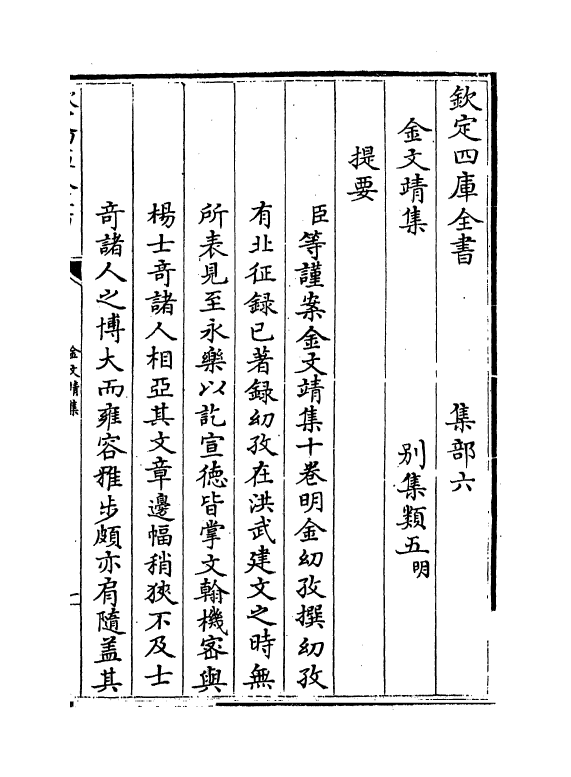 欽定四庫全書　集部六
金文靖集　别集類五明
提要
臣等謹案金文靖集十卷明金幼孜撰幼孜
有北征録已著録幼孜在洪武建文之時無
所表見至永樂以訖宣徳皆掌文翰機密與
楊士竒諸人相亞其文章邊幅稍狹不及士
竒諸人之博大而雍容雅步頗亦肩隨盖其
金文靖集
一